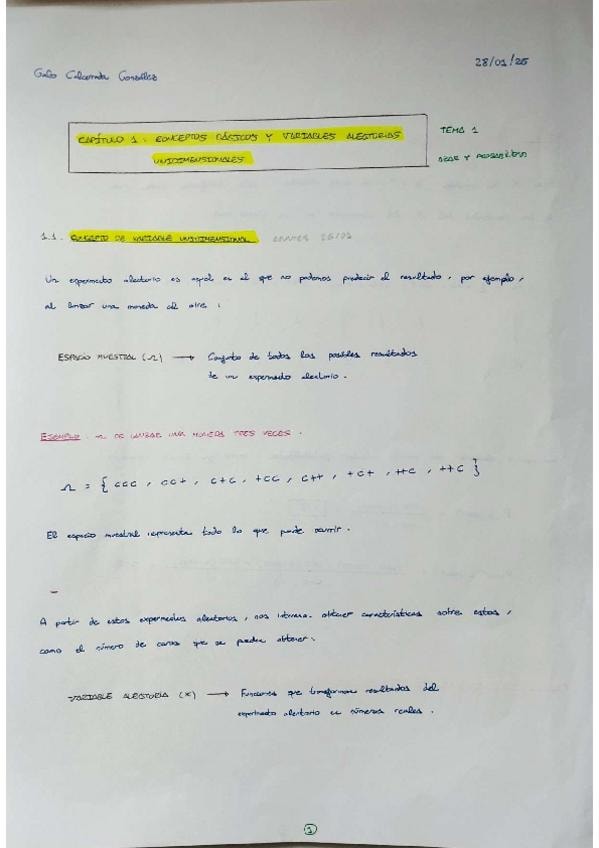 28/01/25
González
CAPÍTULO 1. CONCEPTOS BÁSICOS Y VARIABLES ALEATORIAS
UNIDIMENSIONALES
TEMA 1
AZAR Y PROBABILIDAD
1.1. CONCEPTO DE VARIABLE UNIDIMENSIONAL
Un experimento aleatorio es aquel en el que no podemos predecir el resultado, por ejemplo,
al lanzar una moneda al aire.
ESPACIO MUESTRAL (Ω) → Conjunto de todos los posibles resultados
de un experimento aleatorio.
EJEMPLO: Ω DE LANZAR UNA MONEDA TRES VECES.
Ω = { CCC, CC+, C+C, +CC, C++, +C+,
El espacio muestral representa todo lo que puede ocurrir.
A partir de estos experimentos aleatorios, nos interesa obtener características sobre estos,
como el número de caras que se pueden obtener.
VARIABLE ALEATORIA (X) → Funciones que transforman resultados del
experimento aleatorio en números reales.
1